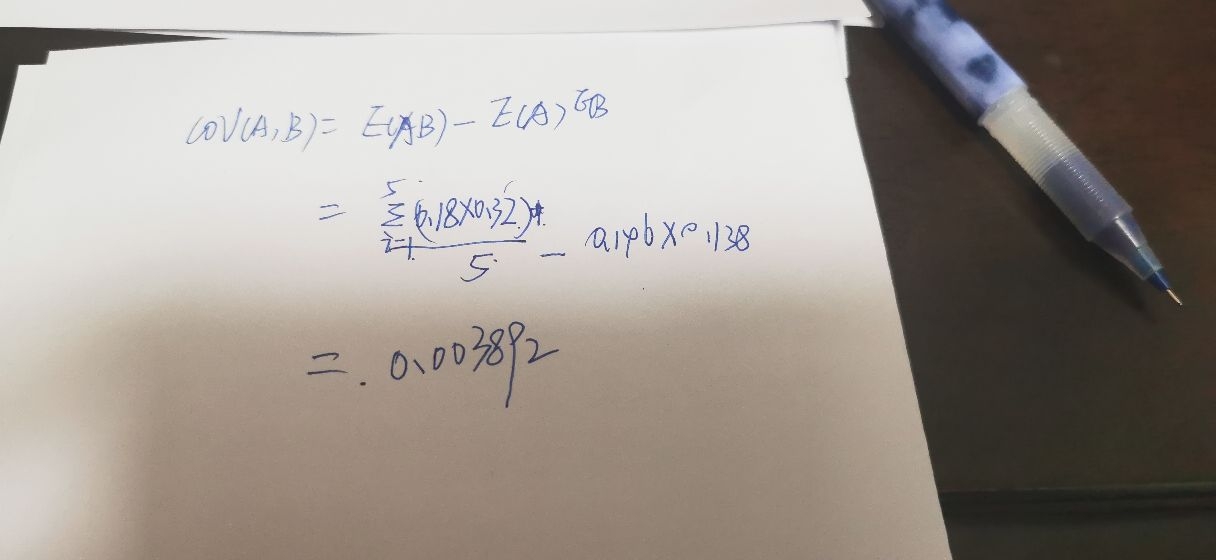 COV(A,B) = E(AB) - E(A)EB
= \frac{\sum_{i=1}^{5}(0.18×0.32)+}{5} - 0.146×0.138
= 0.003892